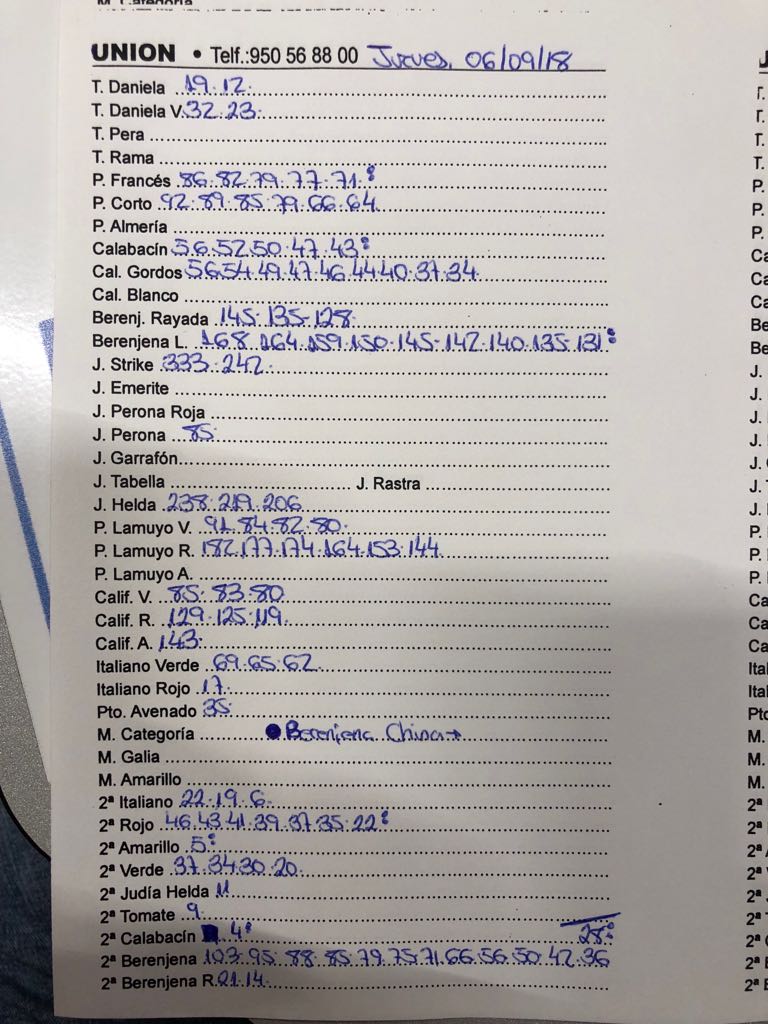 M. Categoría
UNION • Telf.:950 56 88 00 Jueves, 06/09/18
T. Daniela 19.12.
T. Daniela V. 32.23.
T. Pera
T. Rama
P. Francés 86.82.79.77.71.
P. Corto 92.89.85.79.66.64
P. Almería
Calabacín 56.52.50.47.43.
Cal. Gordos 56.54.49.47.46.44.40.37.34.
Cal. Blanco
Berenj. Rayada 145.135.128.
Berenjena L. 168.164.159.150.145.142.140.135.131.
J. Strike 333.242.
J. Emerite
J. Perona Roja
J. Perona 85
J. Garrafón
J. Tabella J. Rastra
J. Helda 238.219.206
P. Lamuyo V. 91.84.82.80.
P. Lamuyo R. 182.177.174.164.153.144
P. Lamuyo A.
Calif. V. 85.83.80
Calif. R. 129.125.119.
Calif. A. 143.
Italiano Verde 69.65.62
Italiano Rojo 17.
Pto. Avenado 35
M. Categoría Berenjena China→
M. Galia
M. Amarillo
2ª Italiano 22.19.6.
2ª Rojo 46.43.41.39.37.35.22.
2ª Amarillo 5.
2ª Verde 37.34.30.20.
2ª Judía Helda 11
2ª Tomate 9
2ª Calabacín 4. 28.
2ª Berenjena 103.95.88.85.79.75.71.66.56.50.42.36
2ª Berenjena R. 21.14.